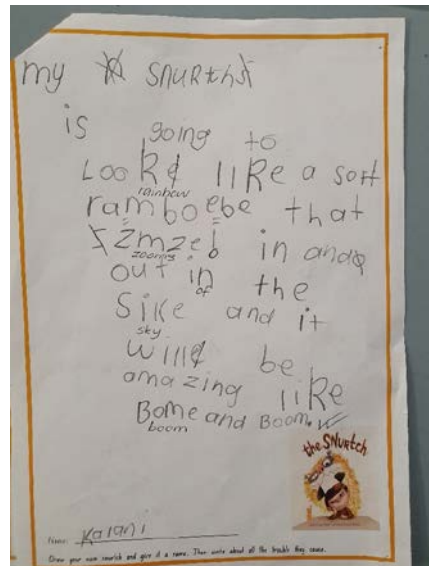 my SNURtht
is going to
LOOR¢ liRe a sort
rainbow
ramboebe that
zmze! in and
zooming
out in the
of
Sike and it
sky
will be
amazing like
Bome and Boom.
boom
the SNURtCH
Name: Kalani
Draw your own snurtch and give it a name. Then write about all the trouble they cause.